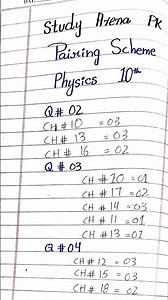 Study Arena PK
Pairing Scheme
Physics 10th
Q # 02
CH # 10 = 03
CH # 13 = 03
CH # 16 = 02
Q # 03
CH # 20 = 01
CH # 17 = 02
CH # 14 = 03
CH # 11 = 01
CH # 13 = 01
Q # 04
CH # 12 = 03
CH # 15 = 03
CH # 18 = 02